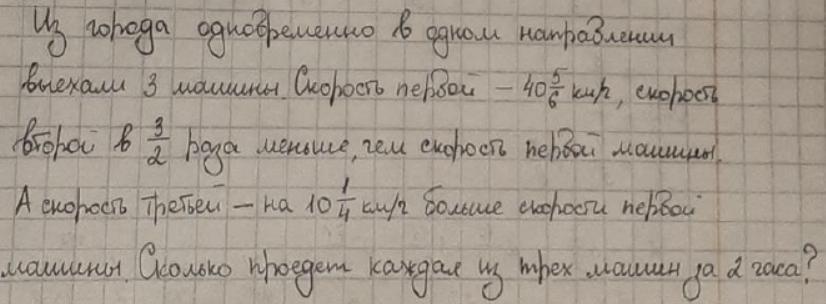 Из города одновременно в одном направлении
выехали 3 машины. Скорость первой – 40 5/6 км/ч, скорость
второй в 3/2 раза меньше, чем скорость первой машины.
А скорость третьей – на 10 1/4 км/ч больше скорости первой
машины. Сколько проедет каждая из трех машин за 2 часа?